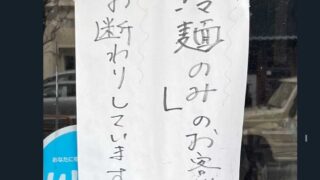 冷麺のみのお客
し
お断わりしています
あなたに